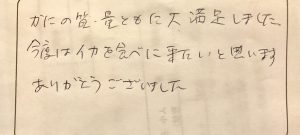 かにの質・量ともに大満足しました
今度はイカを食べに来たいと思います
ありがとうございました